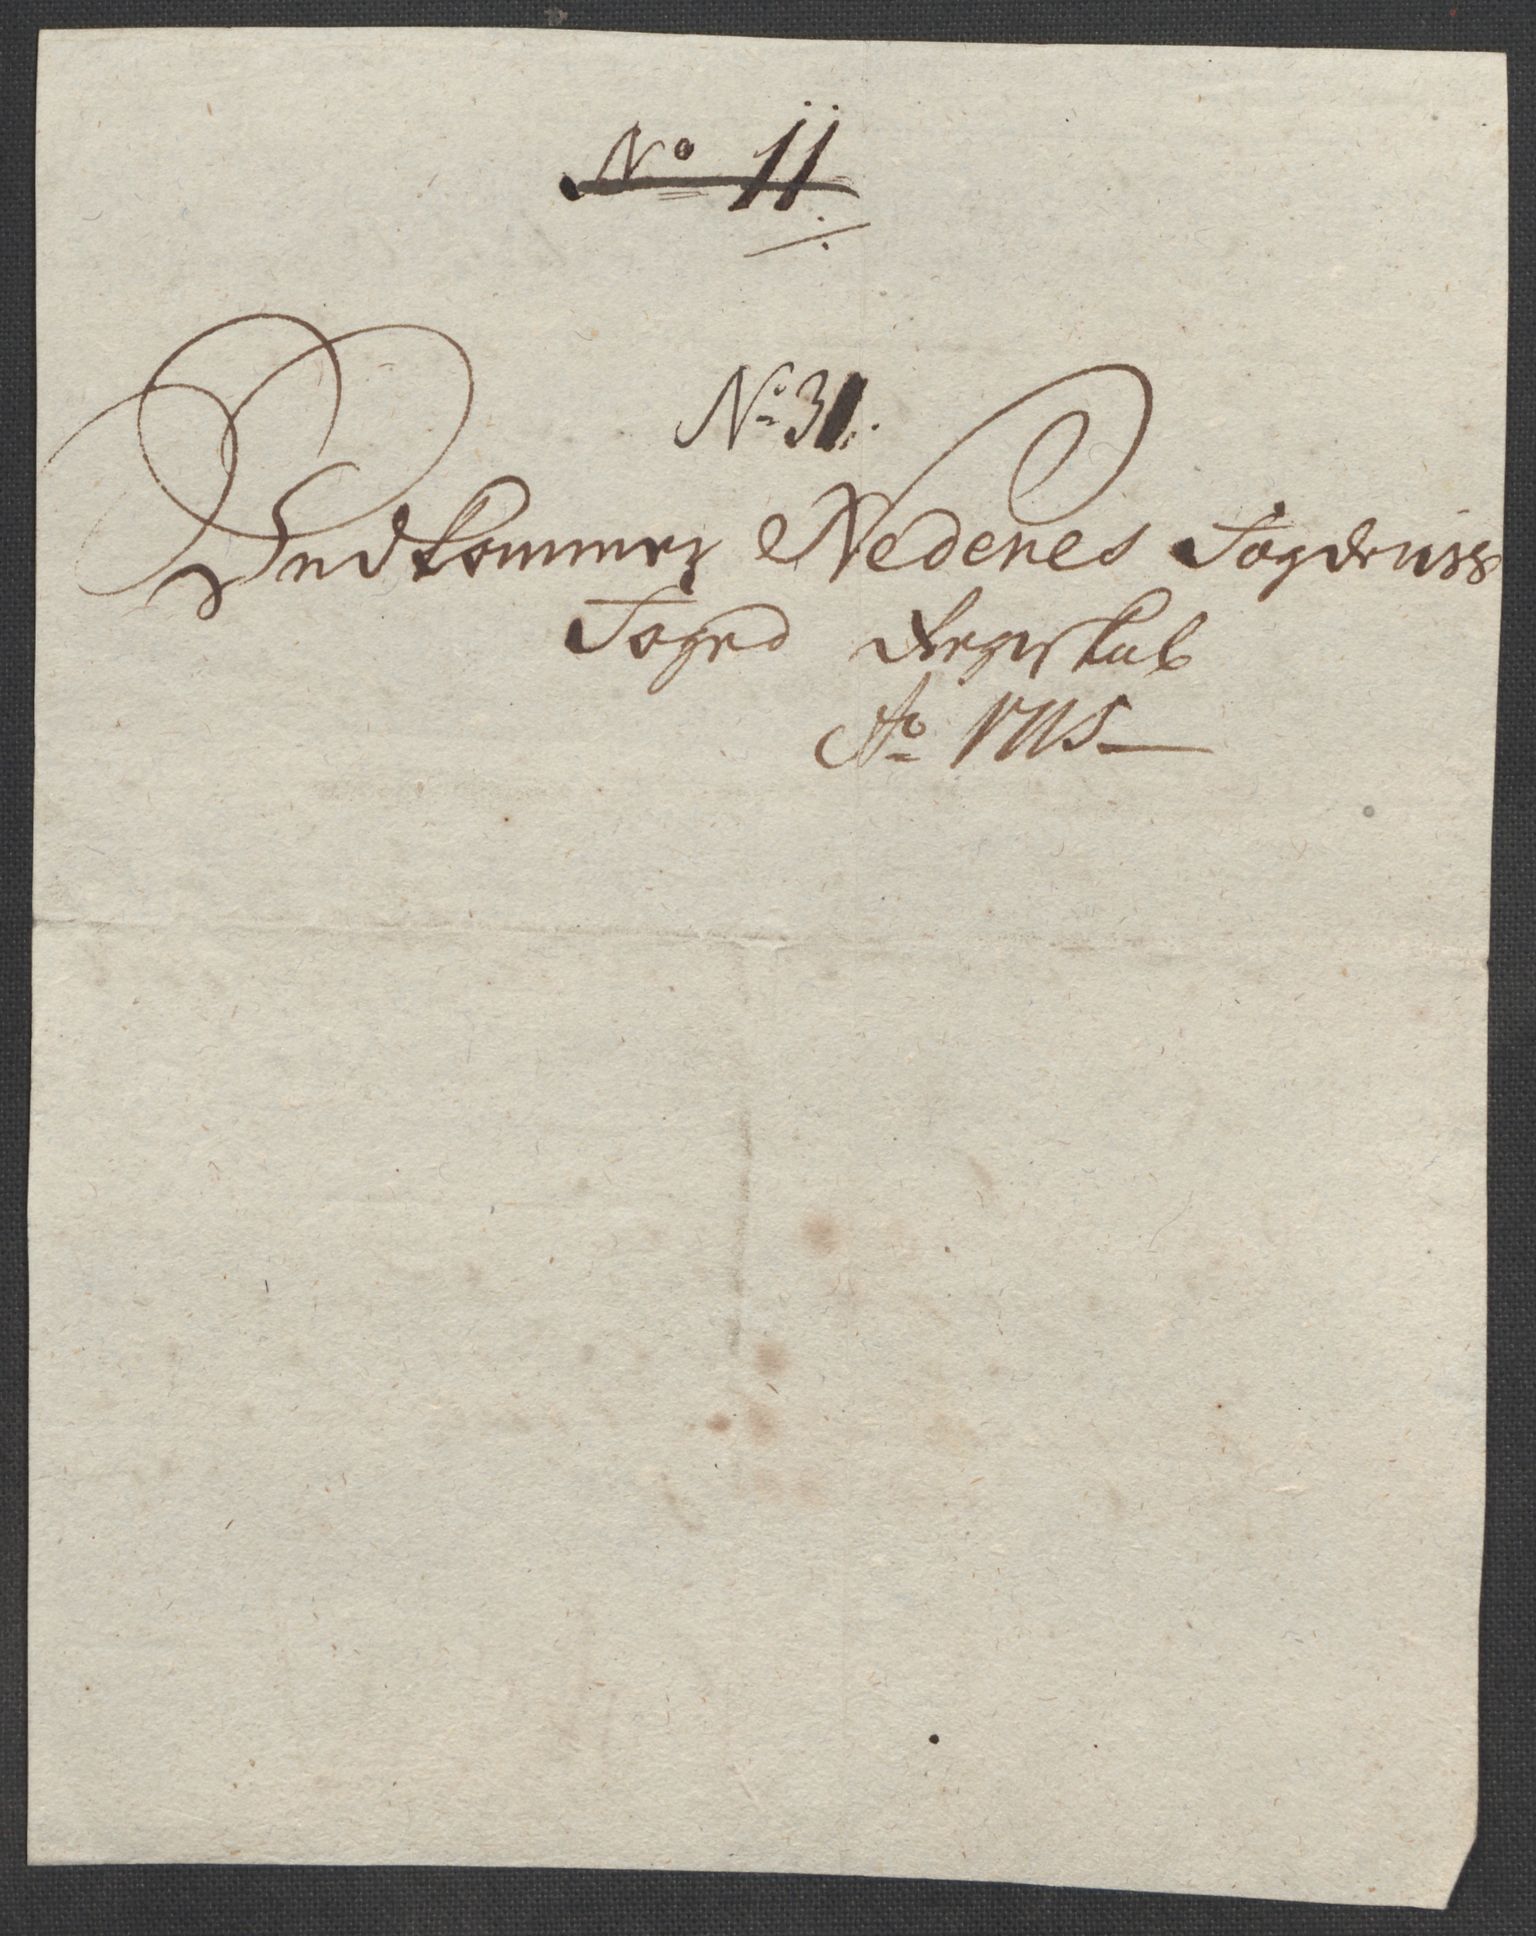 No 11
No 31.
Vedkommer Nedenes Fogderiss
Foged Regnskab
Ao 1715